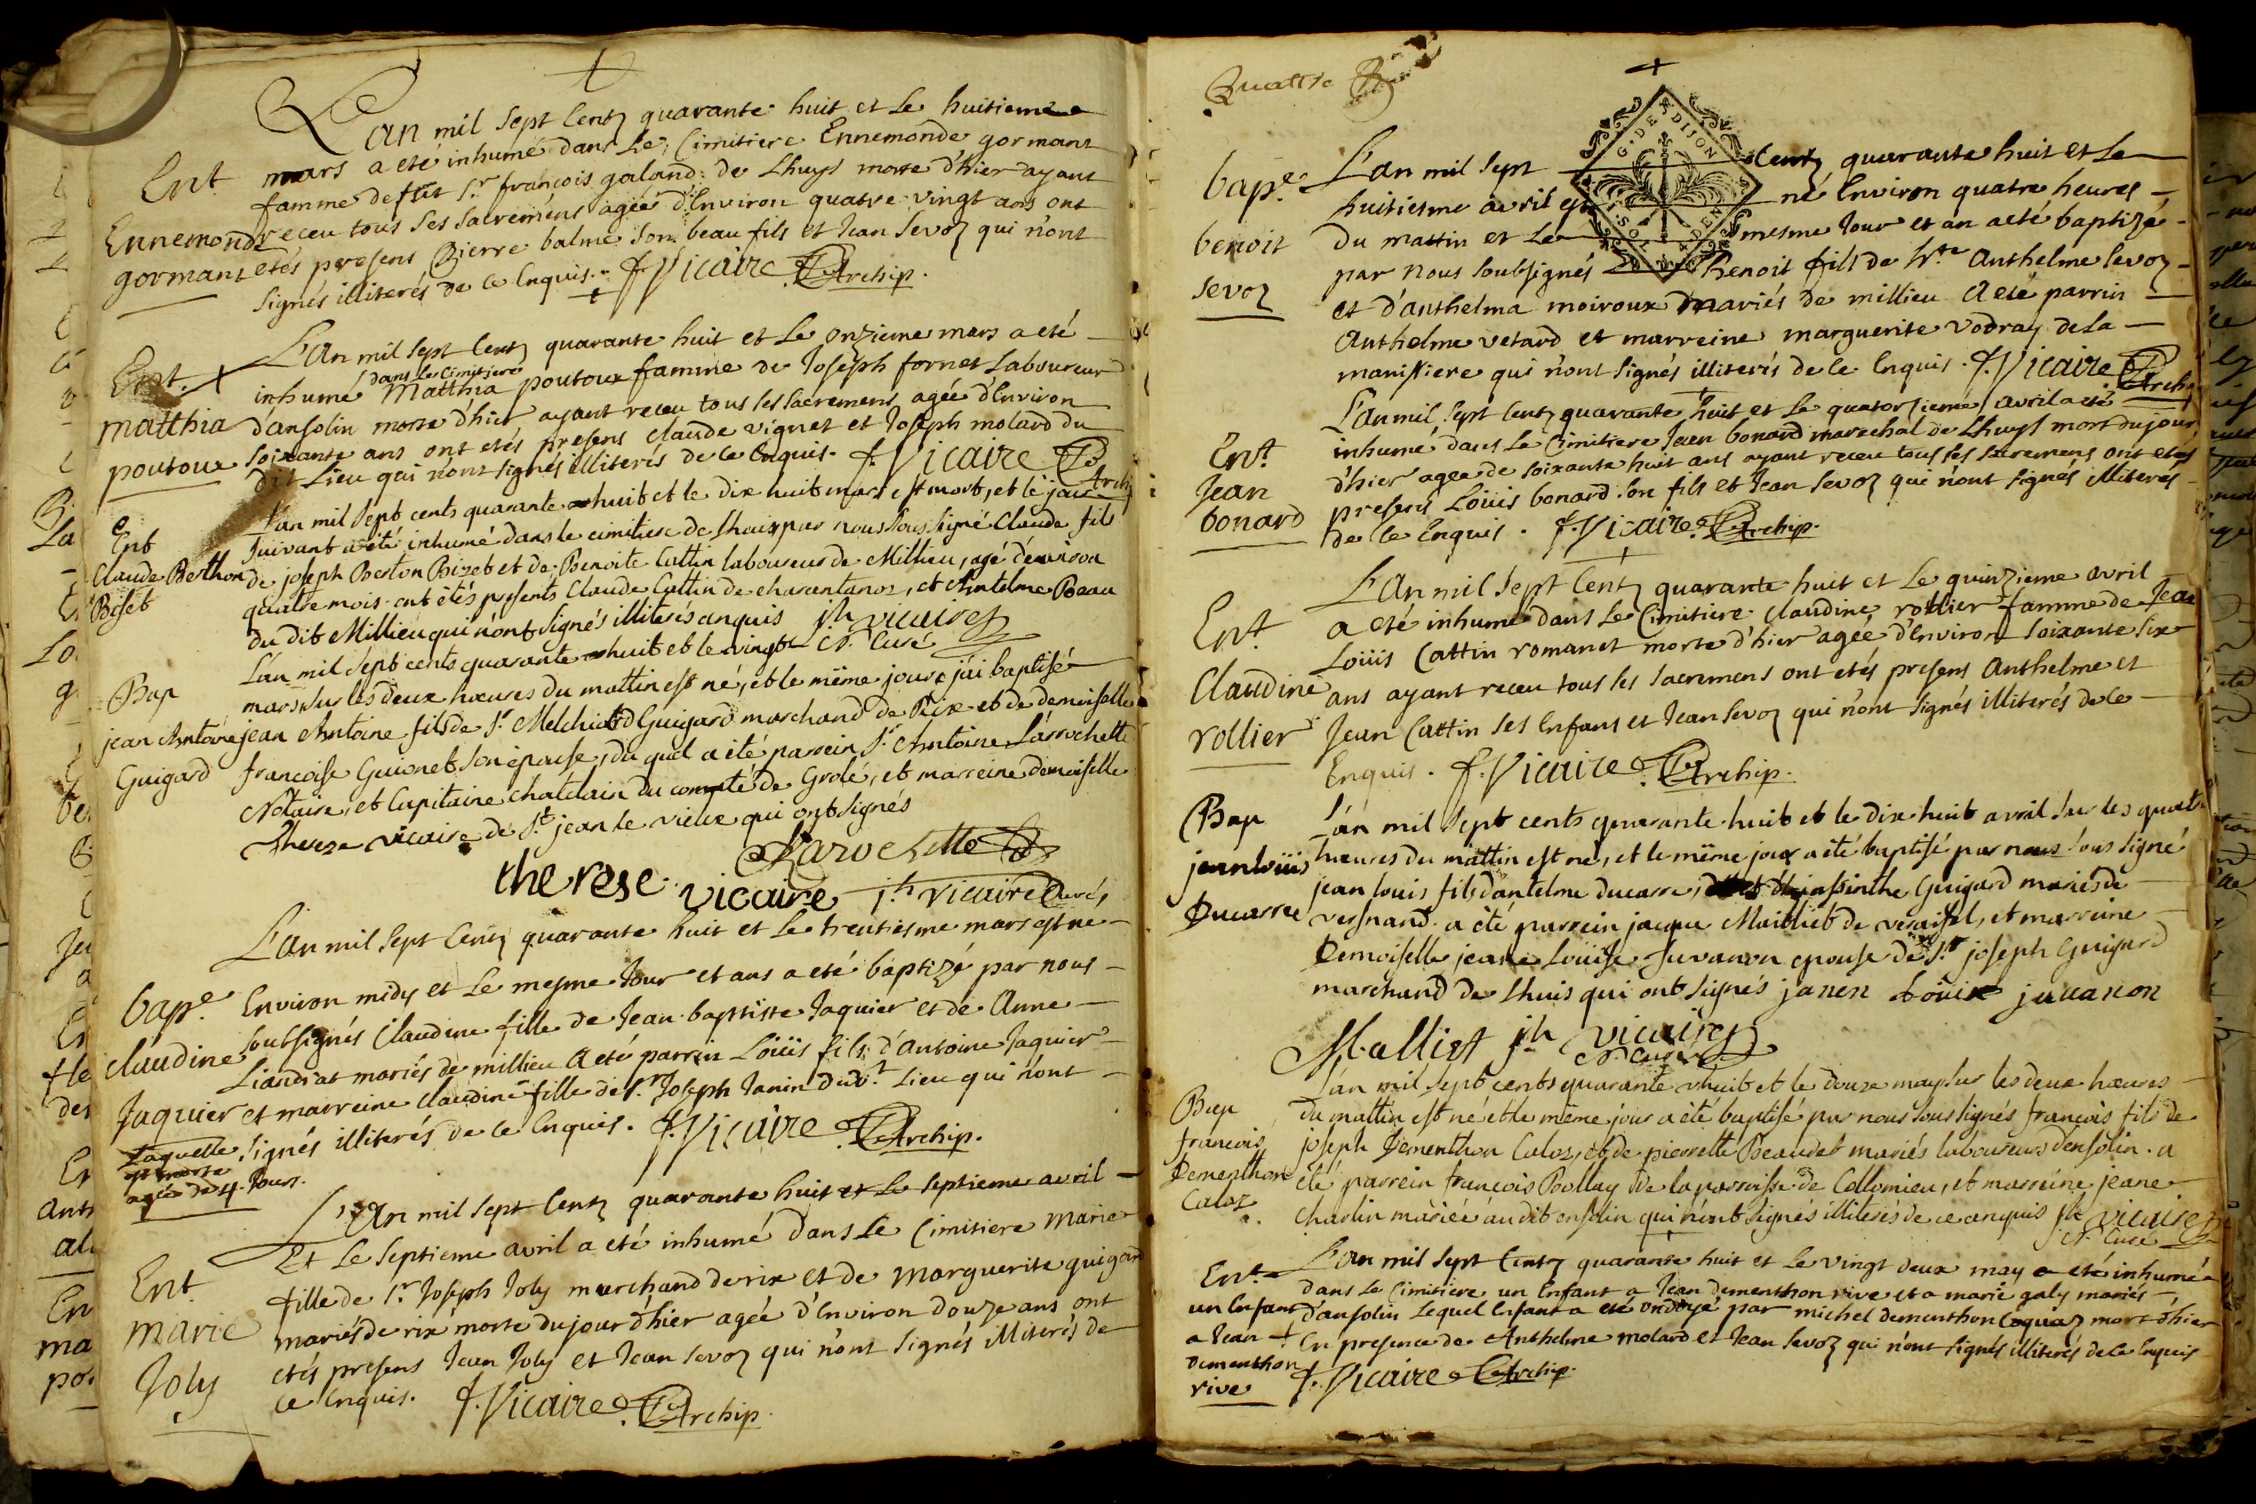 L'an mil sept Centz quarante huit et Le huitieme
Ent mars a eté inhumé dans Le Cimitiere Ennemonde gormant
famme de fut Sr. françois galand de Lhuys morte d'hier ayant
Ennemonde receu tous ses sacremens agée d'Environ quatre vingt ans ont
gormant etés presens Pierre balme son beau fils et Jean Sevoz qui n'ont
signés illiterés de ce Enquis. f. Vicaire Archip.
L'An mil sept Centz quarante huit et Le onzieme mars a eté
dans Le Cimitiere
Ent. inhumé Matthia poutoux famme de Joseph fornet Laboureur
matthia d'ansolin morte d'hier ayant receu tous ses sacremens agée d'Environ
poutoux soixante ans ont etés presens claude vignet et Joseph molard du
dit Lieu qui n'ont signés illiterés de ce Enquis. f. Vicaire Archip
L'an mil sept cents quarante huit et le dix huit mars est mort, et le jour
Ent suivant a été inhumé dans le cimitiere de Lhuis par nous sous signé Claude fils
Claude Berthon de joseph Berton Bizet et de Benoite Cattin laboureurs de Millieu, agé d'environ
Biset quatre mois. ont étés présents Claude Cattin de charantanos, et Antelme Beau
du dit Millieu qui n'ont signés illiterés enquis jh vicaire
N. Curé
L'an mil sept cents quarante huit et le vingt
Bap mars sur les deux hœures du mattin est né, et le même jour j'ai baptisé
jean Antoine jean Antoine fils de Sr. Melchiord Guigard marchand de Rix et de demoiselle
Guigard francoise Guionet son épouse, du quel a été parrein Sr. Antoine Larochette
Notaire, et Capitaine chatelain du compté de Grolé, et marreine demoiselle
Therese vicaire de St. jean le vieux qui ont signés
Larochette
therese vicaire jh vicaire Curé
L'an mil sept Centz quarante huit et Le trentiesme mars est né
bap.e Environ midy et Le mesme Jour et ans a eté baptizé par nous
soubsignés Claudine fille de Jean baptiste Jaquier et de Anne
claudine Liandrat mariés de millieu A eté parrin Loüis fils d'Antoine Jaquier
Jaquier et marreine claudine fille de Sr. Joseph Janin dudt. Lieu qui n'ont
Laquelle signés illiterés de ce Enquis. f. Vicaire Archip.
est morte
agée de 4. Jours.
L'An mil sept Centz quarante huit et Le septieme avril
Et Le septieme avril a eté inhumé dans Le Cimitiere Marie
Ent fille de Sr. Joseph Joly marchand de rix et de Marguerite guigard
marie mariés de rix morte du jour d'hier agée d'Environ douze ans ont
Joly etés presens Jean Joly et Jean Sevoz qui n'ont signés illiterés de
ce Enquis. f. Vicaire Archip.
Quattre
G. DE DIJON
bap.e L'an mil sept Centz quarante huit et Le
huitiesme avril est né Environ quatre heures
benoit du mattin et Le mesme Jour et an a eté baptizé
sevoz par nous soubsignés Benoit fils de Anthelme Sevoz
et d'anthelma moiroux mariés de millieu A eté parrin
Anthelme vetard et marreine marguerite vodray de La
manissiere qui n'ont signés illiterés de ce Enquis. f. Vicaire Archip
L'an mil sept Centz quarante huit et Le quatorzieme avril a eté
Ent. inhumé dans Le Cimitiere Jean bonard marechal de Lhuys mort du jour
Jean d'hier agée de soixante huit ans ayant receu tous ses sacremens ont etés
bonard presens Loüis bonard son fils et Jean Sevoz qui n'ont signés illiterés
de ce Enquis. f. Vicaire Archip.
L'An mil sept Centz quarante huit et Le quinzieme avril
Ent a eté inhumé dans Le Cimitiere claudine rollier famme de Jean
Loüis Cattin romanet morte d'hier agée d'Environ soixante six
Claudine ans ayant receu tous ses sacremens ont etés presens Anthelme et
rollier Jean Cattin ses Enfans et Jean Sevoz qui n'ont signés illiterés de ce
Enquis. f. Vicaire Archip.
Bap L'an mil sept cents quarante huit et le dix huit avril sur les quatre
jean loüis hœures du mattin est né, et le même jour a été baptisé par nous sous signé
Ducarre jean louis fils d'antelme ducarre, et de jassinthe Guigard mariés de
versnand. a été parrein jaque Mailliet de veraisel, et marreine
Demoiselle jeane Loüise Juvanon epouse de Sr. joseph Guigard
marchand de Lhuis qui ont signés janen Loüise juvanon
Malliet jh vicaire
N. Curé
L'an mil sept cents quarante huit et le douze may sur les deux hœures
Bap du mattin est né et le même jour a été baptisé par nous sous signés françois fils de
francois joseph Dementhon Caloz, et de pierrette Beaudet mariés laboureurs d'ensolin. a
Dementhon été parrein francois Poollay de la parroisse de Collomieu, et marreine jeane
Caloz. Charlin mariée au dit ensolin qui n'ont signés illiterés de ce enquis jh vicaire
N. Curé
Ent. L'an mil sept Centz quarante huit et Le vingt deux may a eté inhumé
dans Le Cimitiere un Enfant a Jean dementhon rive et a marie galy mariés
un Enfant d'ansolin Lequel Enfant a eté ondoyé par michel dementhon Coquaz mort d'hier
a Jean En presence de Anthelme molard et Jean Sevoz qui n'ont signés illiterés de ce Enquis
dementhon f. Vicaire Archip.
rive